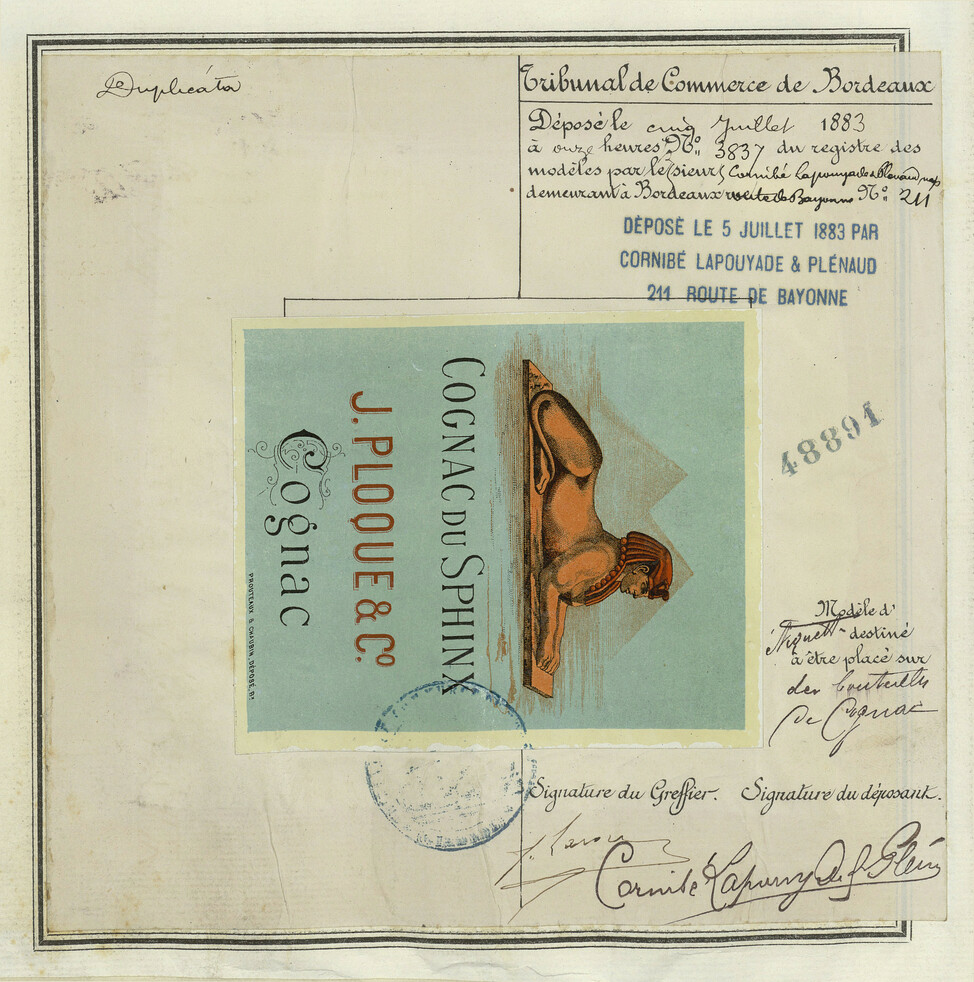 Duplicáta
Tribunal de Commerce de Bordeaux
Déposé le cinq Juillet 1883
à onze heures No. 3837 du registre des
modèles par le(sieurs) Cornibé Lapouyade & Plénaud
demeurant à Bordeaux route de Bayonne No. 211
DÉPOSÉ LE 5 JUILLET 1883 PAR
CORNIBÉ LAPOUYADE & PLÉNAUD
211 ROUTE DE BAYONNE
COGNAC DU SPHINX
J. PLOQUE & Co.
Cognac
PROUTEAUX & CHAUBIN, DÉPOSÉ, Bx
48891
Modèle d'
destiné
à être placé sur
des bouteilles
de Cognac
Signature du Greffier. Signature du déposant.
Cornibé Lapouyade & Plén